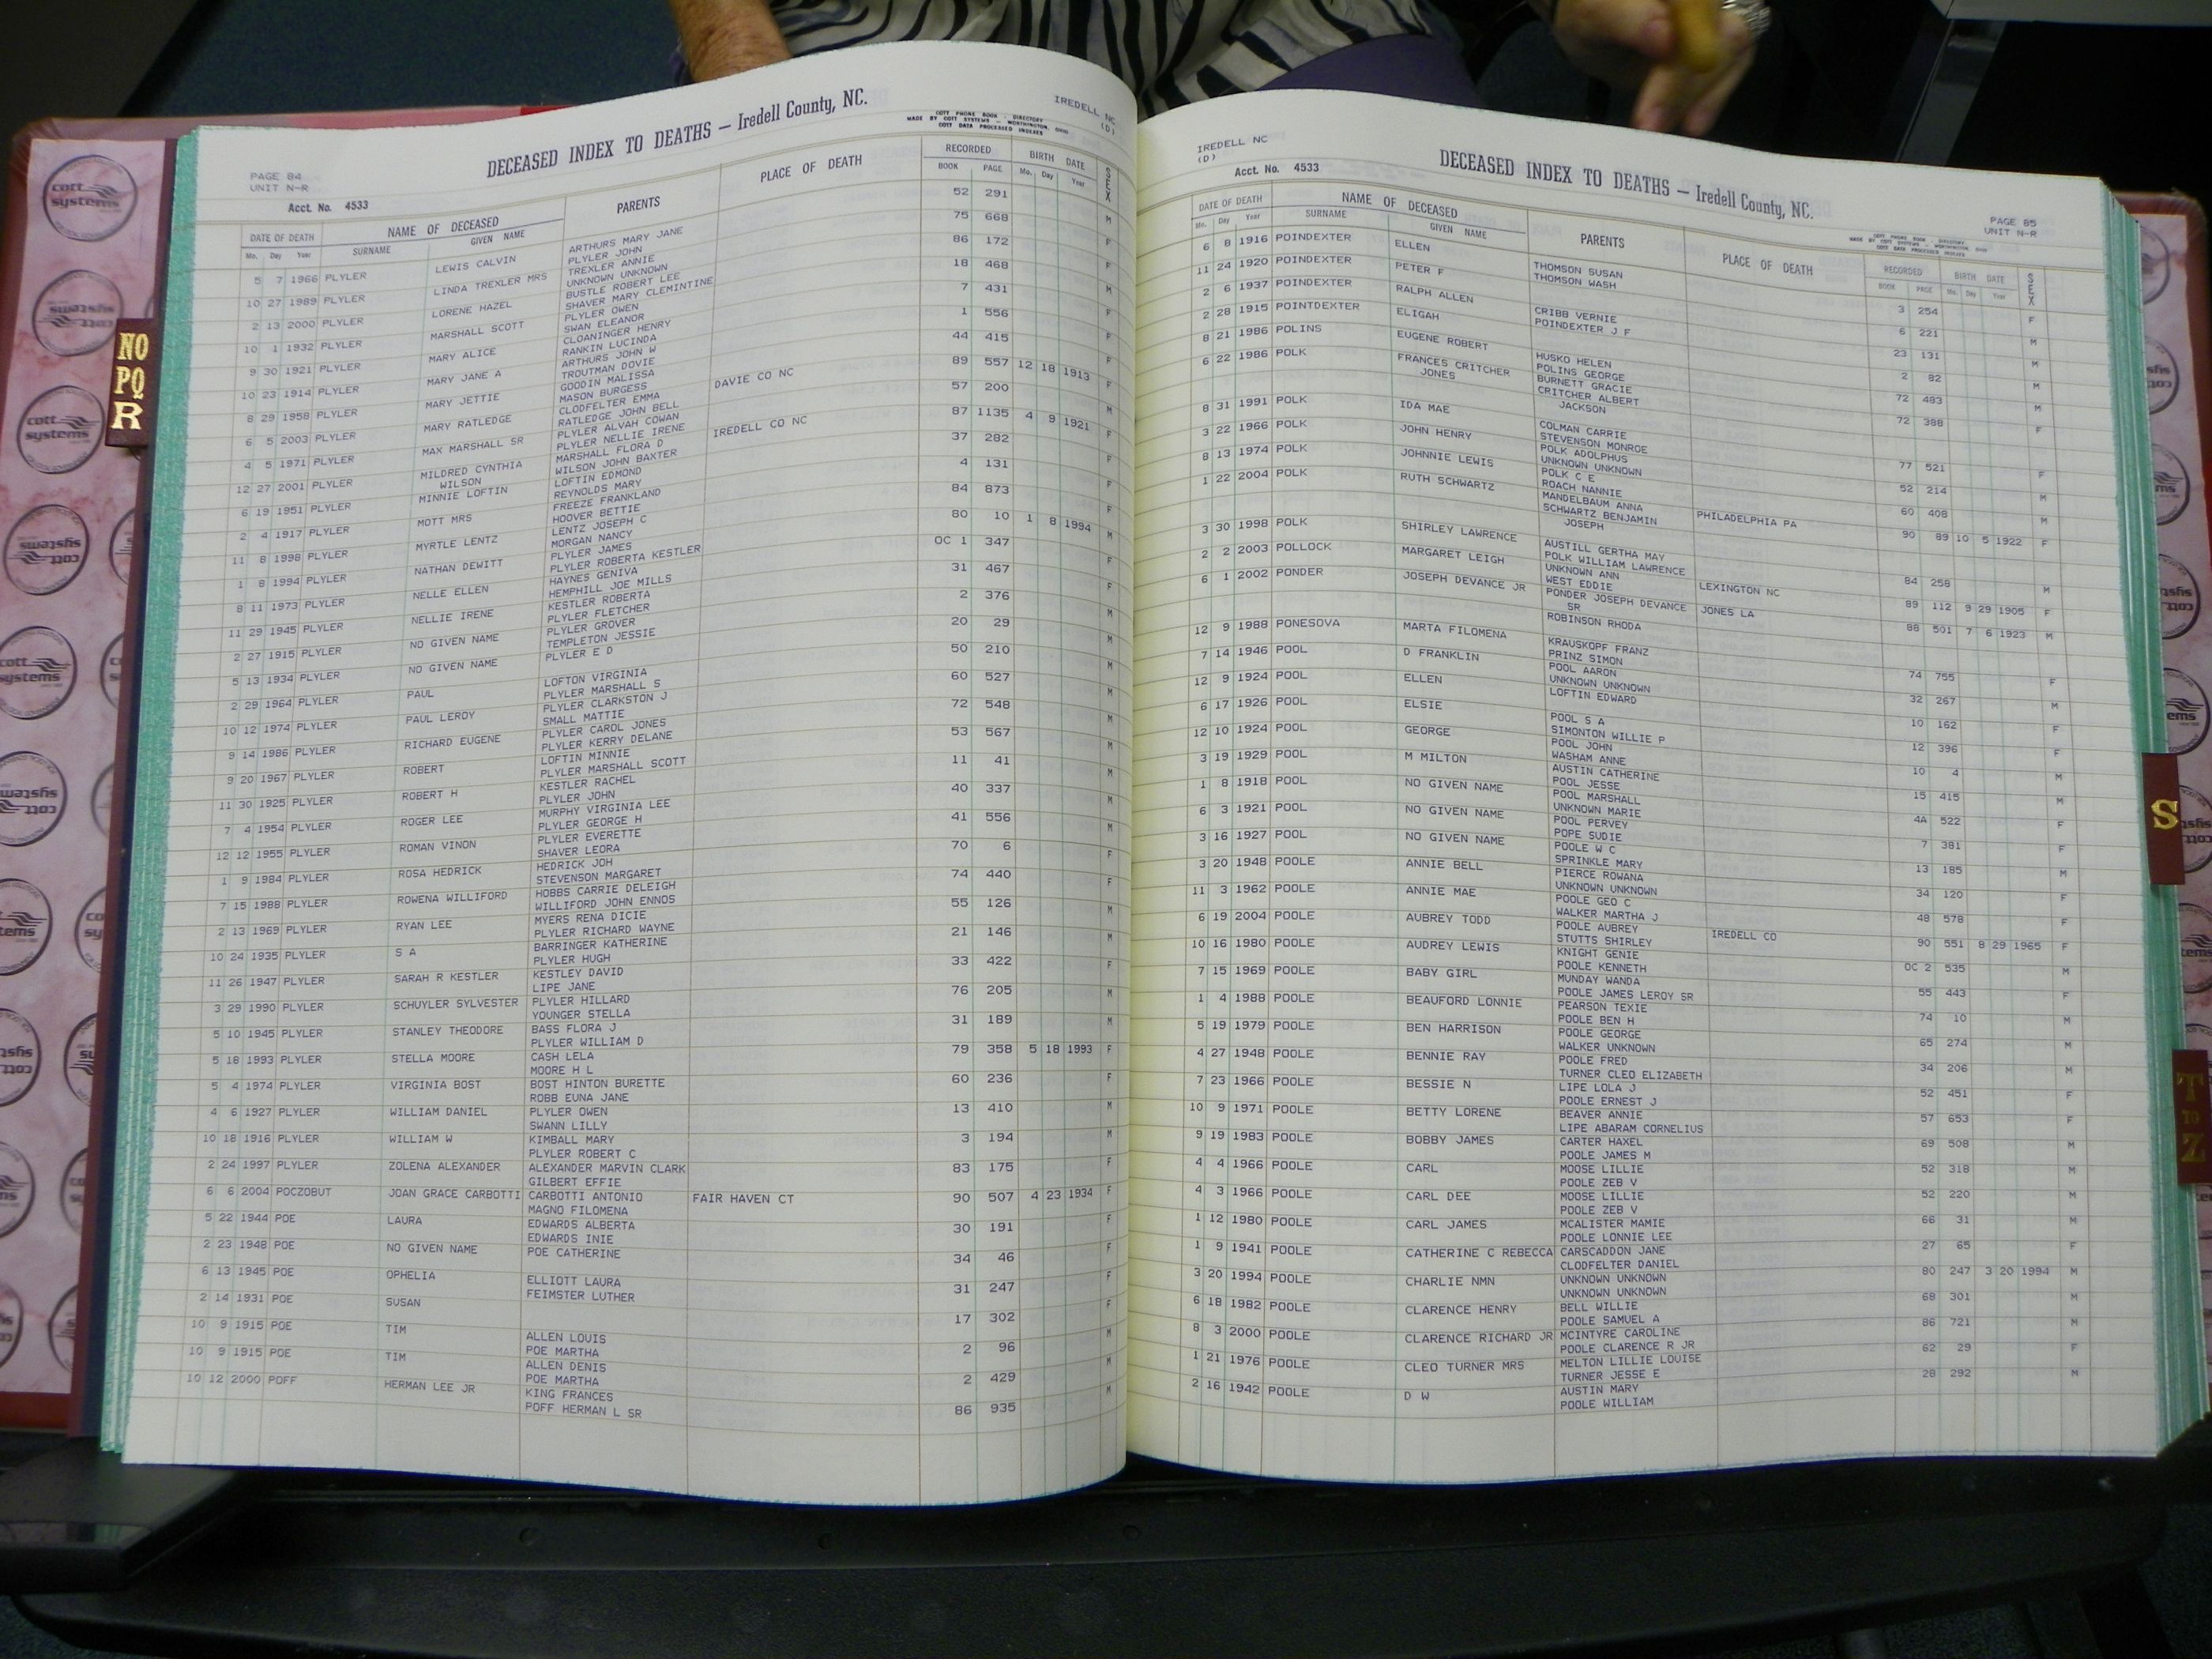 IREDELL NC
(D)
DECEASED INDEX TO DEATHS — Iredell County, NC.
COTT PHONE BOOK - DIRECTORY
MADE BY COTT SYSTEMS — WORTHINGTON, OHIO
COTT DATA PROCESSED INDEXES
PAGE 84
UNIT N-R
Acct. No. 4533
DATE OF DEATH NAME OF DECEASED PARENTS PLACE OF DEATH RECORDED BIRTH DATE SEX
Mo. Day Year SURNAME GIVEN NAME BOOK PAGE Mo. Day Year
5 7 1966 PLYLER LEWIS CALVIN ARTHURS MARY JANE 52 291 M
PLYLER JOHN
10 27 1989 PLYLER LINDA TREXLER MRS TREXLER ANNIE 75 668 F
UNKNOWN UNKNOWN
2 13 2000 PLYLER LORENE HAZEL BUSTLE ROBERT LEE 86 172 F
SHAVER MARY CLEMENTINE
10 1 1932 PLYLER MARSHALL SCOTT PLYLER OWEN 18 468 M
SWAN ELEANOR
9 30 1921 PLYLER MARY ALICE CLOANINGER HENRY 7 431 F
RANKIN LUCINDA
10 23 1914 PLYLER MARY JANE A ARTHURS JOHN W 1 556 F
TROUTMAN DOVIE
8 29 1958 PLYLER MARY JETTIE GOODIN MALISSA 44 415 F
MASON BURGESS
6 5 2003 PLYLER MARY RATLEDGE CLODFELTER EMMA DAVIE CO NC 89 557 12 18 1913 F
RATLEDGE JOHN BELL
4 5 1971 PLYLER MAX MARSHALL SR PLYLER ALVAH COWAN 57 200 M
PLYLER NELLIE IRENE
12 27 2001 PLYLER MILDRED CYNTHIA MARSHALL FLORA D IREDELL CO NC 87 1135 4 9 1921 F
WILSON WILSON JOHN BAXTER
6 19 1951 PLYLER MINNIE LOFTIN LOFTIN EDMOND 37 282 F
REYNOLDS MARY
2 4 1917 PLYLER MOTT MRS FREEZE FRANKLAND 4 131 F
HOOVER BETTIE
11 8 1998 PLYLER MYRTLE LENTZ LENTZ JOSEPH C 84 873 F
MORGAN NANCY
1 8 1994 PLYLER NATHAN DEWITT PLYLER JAMES 80 10 1 8 1994 M
PLYLER ROBERTA KESTLER
8 11 1973 PLYLER NELLE ELLEN HAYNES GENIVA OC 1 347 F
HEMPHILL JOE MILLS
11 29 1945 PLYLER NELLIE IRENE KESTLER ROBERTA 31 467 F
PLYLER FLETCHER
2 27 1915 PLYLER NO GIVEN NAME PLYLER GROVER 2 376 M
TEMPLETON JESSIE
5 13 1934 PLYLER NO GIVEN NAME PLYLER E D 20 29 M
2 29 1964 PLYLER PAUL LOFTON VIRGINIA 50 210 M
PLYLER MARSHALL S
10 12 1974 PLYLER PAUL LEROY PLYLER CLARKSTON J 60 527 M
SMALL MATTIE
9 14 1986 PLYLER RICHARD EUGENE PLYLER CAROL JONES 72 548 M
PLYLER KERRY DELANE
9 20 1967 PLYLER ROBERT LOFTIN MINNIE 53 567 M
PLYLER MARSHALL SCOTT
11 30 1925 PLYLER ROBERT H KESTLER RACHEL 11 41 M
PLYLER JOHN
7 4 1954 PLYLER ROGER LEE MURPHY VIRGINIA LEE 40 337 M
PLYLER GEORGE H
12 12 1955 PLYLER ROMAN VINON PLYLER EVERETTE 41 556 M
SHAVER LEORA
1 9 1984 PLYLER ROSA HEDRICK HEDRICK JOH 70 6 F
STEVENSON MARGARET
7 15 1988 PLYLER ROWENA WILLIFORD HOBBS CARRIE DELEIGH 74 440 F
WILLIFORD JOHN ENNOS
2 13 1969 PLYLER RYAN LEE MYERS RENA DICIE 55 126 M
PLYLER RICHARD WAYNE
10 24 1935 PLYLER S A BARRINGER KATHERINE 21 146 M
PLYLER HUGH
11 26 1947 PLYLER SARAH R KESTLER KESTLEY DAVID 33 422 F
LIPE JANE
3 29 1990 PLYLER SCHUYLER SYLVESTER PLYLER HILLARD 76 205 M
YOUNGER STELLA
5 10 1945 PLYLER STANLEY THEODORE BASS FLORA J 31 189 M
PLYLER WILLIAM D
5 18 1993 PLYLER STELLA MOORE CASH LELA 79 358 5 18 1993 F
MOORE H L
5 4 1974 PLYLER VIRGINIA BOST BOST HINTON BURETTE 60 236 F
ROBB EUNA JANE
4 6 1927 PLYLER WILLIAM DANIEL PLYLER OWEN 13 410 M
SWANN LILLY
10 18 1916 PLYLER WILLIAM W KIMBALL MARY 3 194 M
PLYLER ROBERT C
2 24 1997 PLYLER ZOLENA ALEXANDER ALEXANDER MARVIN CLARK 83 175 F
GILBERT EFFIE
6 6 2004 POCZOBUT JOAN GRACE CARBOTTI CARBOTTI ANTONIO FAIR HAVEN CT 90 507 4 23 1934 F
MAGNO FILOMENA
5 22 1944 POE LAURA EDWARDS ALBERTA 30 191 F
EDWARDS INIE
2 23 1948 POE NO GIVEN NAME POE CATHERINE 34 46 F
6 13 1945 POE OPHELIA ELLIOTT LAURA 31 247 F
FEIMSTER LUTHER
2 14 1931 POE SUSAN 17 302 F
10 9 1915 POE TIM ALLEN LOUIS 2 96 M
POE MARTHA
10 9 1915 POE TIM ALLEN DENIS 2 429 M
POE MARTHA
10 12 2000 POFF HERMAN LEE JR KING FRANCES 86 935 M
POFF HERMAN L SR
IREDELL NC
(D)
Acct. No. 4533
DECEASED INDEX TO DEATHS — Iredell County, NC.
PAGE 85
UNIT N-R
COTT PHONE BOOK - DIRECTORY
MADE BY COTT SYSTEMS — WORTHINGTON, OHIO
COTT DATA PROCESSED INDEXES
DATE OF DEATH NAME OF DECEASED PARENTS PLACE OF DEATH RECORDED BIRTH DATE SEX
Mo. Day Year SURNAME GIVEN NAME BOOK PAGE Mo. Day Year
6 8 1916 POINDEXTER ELLEN THOMSON SUSAN 3 254 F
THOMSON WASH
11 24 1920 POINDEXTER PETER F 6 221 M
2 6 1937 POINDEXTER RALPH ALLEN CRIBB VERNIE 23 131 M
POINDEXTER J F
2 28 1915 POINTDEXTER ELIGAH 2 82 M
8 21 1986 POLINS EUGENE ROBERT HUSKO HELEN 72 483 M
POLINS GEORGE
6 22 1986 POLK FRANCES CRITCHER BURNETT GRACIE 72 388 F
JONES CRITCHER ALBERT
JACKSON
8 31 1991 POLK IDA MAE COLMAN CARRIE 77 521 F
STEVENSON MONROE
3 22 1966 POLK JOHN HENRY POLK ADOLPHUS 52 214 M
UNKNOWN UNKNOWN
8 13 1974 POLK JOHNNIE LEWIS POLK C E 60 408 M
ROACH NANNIE
1 22 2004 POLK RUTH SCHWARTZ MANDELBAUM ANNA PHILADELPHIA PA 90 89 10 5 1922 F
SCHWARTZ BENJAMIN
JOSEPH
3 30 1998 POLK SHIRLEY LAWRENCE AUSTILL GERTHA MAY 84 258 M
POLK WILLIAM LAWRENCE
2 2 2003 POLLOCK MARGARET LEIGH UNKNOWN ANN LEXINGTON NC 89 112 9 29 1905 F
WEST EDDIE
6 1 2002 PONDER JOSEPH DEVANCE JR PONDER JOSEPH DEVANCE JONES LA 88 501 7 6 1923 M
SR
ROBINSON RHODA
12 9 1988 PONESOVA MARTA FILOMENA KRAUSKOPF FRANZ 74 755 F
PRINZ SIMON
7 14 1946 POOL D FRANKLIN POOL AARON 32 267 M
UNKNOWN UNKNOWN
12 9 1924 POOL ELLEN LOFTIN EDWARD 10 162 F
6 17 1926 POOL ELSIE POOL S A 12 396 F
SIMONTON WILLIE P
12 10 1924 POOL GEORGE POOL JOHN 10 4 M
WASHAM ANNE
3 19 1929 POOL M MILTON AUSTIN CATHERINE 15 415 M
POOL JESSE
1 8 1918 POOL NO GIVEN NAME POOL MARSHALL 4A 522 F
UNKNOWN MARIE
6 3 1921 POOL NO GIVEN NAME POOL PERVEY 7 381 F
POPE SUDIE
3 16 1927 POOL NO GIVEN NAME POOLE W C 13 185 M
SPRINKLE MARY
3 20 1948 POOLE ANNIE BELL PIERCE ROWANA 34 120 F
UNKNOWN UNKNOWN
11 3 1962 POOLE ANNIE MAE POOLE GEO C 48 578 F
WALKER MARTHA J
6 19 2004 POOLE AUBREY TODD POOLE AUBREY IREDELL CO 90 551 8 29 1965 F
STUTTS SHIRLEY
10 16 1980 POOLE AUDREY LEWIS KNIGHT GENIE OC 2 535 M
POOLE KENNETH
7 15 1969 POOLE BABY GIRL MUNDAY WANDA 55 443 F
POOLE JAMES LEROY SR
1 4 1988 POOLE BEAUFORD LONNIE PEARSON TEXIE 74 10 M
POOLE BEN H
5 19 1979 POOLE BEN HARRISON POOLE GEORGE 65 274 M
WALKER UNKNOWN
4 27 1948 POOLE BENNIE RAY POOLE FRED 34 206 M
TURNER CLEO ELIZABETH
7 23 1966 POOLE BESSIE N LIPE LOLA J 52 451 F
POOLE ERNEST J
10 9 1971 POOLE BETTY LORENE BEAVER ANNIE 57 653 F
LIPE ABARAM CORNELIUS
9 19 1983 POOLE BOBBY JAMES CARTER HAXEL 69 508 M
POOLE JAMES M
4 4 1966 POOLE CARL MOOSE LILLIE 52 318 M
POOLE ZEB V
4 3 1966 POOLE CARL DEE MOOSE LILLIE 52 220 M
POOLE ZEB V
1 12 1980 POOLE CARL JAMES MCALISTER MAMIE 66 31 M
POOLE LONNIE LEE
1 9 1941 POOLE CATHERINE C REBECCA CARSCADDON JANE 27 65 F
CLODFELTER DANIEL
3 20 1994 POOLE CHARLIE NMN UNKNOWN UNKNOWN 80 247 3 20 1994 M
UNKNOWN UNKNOWN
6 18 1982 POOLE CLARENCE HENRY BELL WILLIE 68 301 M
POOLE SAMUEL A
8 3 2000 POOLE CLARENCE RICHARD JR MCINTYRE CAROLINE 86 721 M
POOLE CLARENCE R JR
1 21 1976 POOLE CLEO TURNER MRS MELTON LILLIE LOUISE 62 29 F
TURNER JESSE E
2 16 1942 POOLE D W AUSTIN MARY 28 292 M
POOLE WILLIAM
NO
PQ
R
S
T
TO
Z
cott
systems